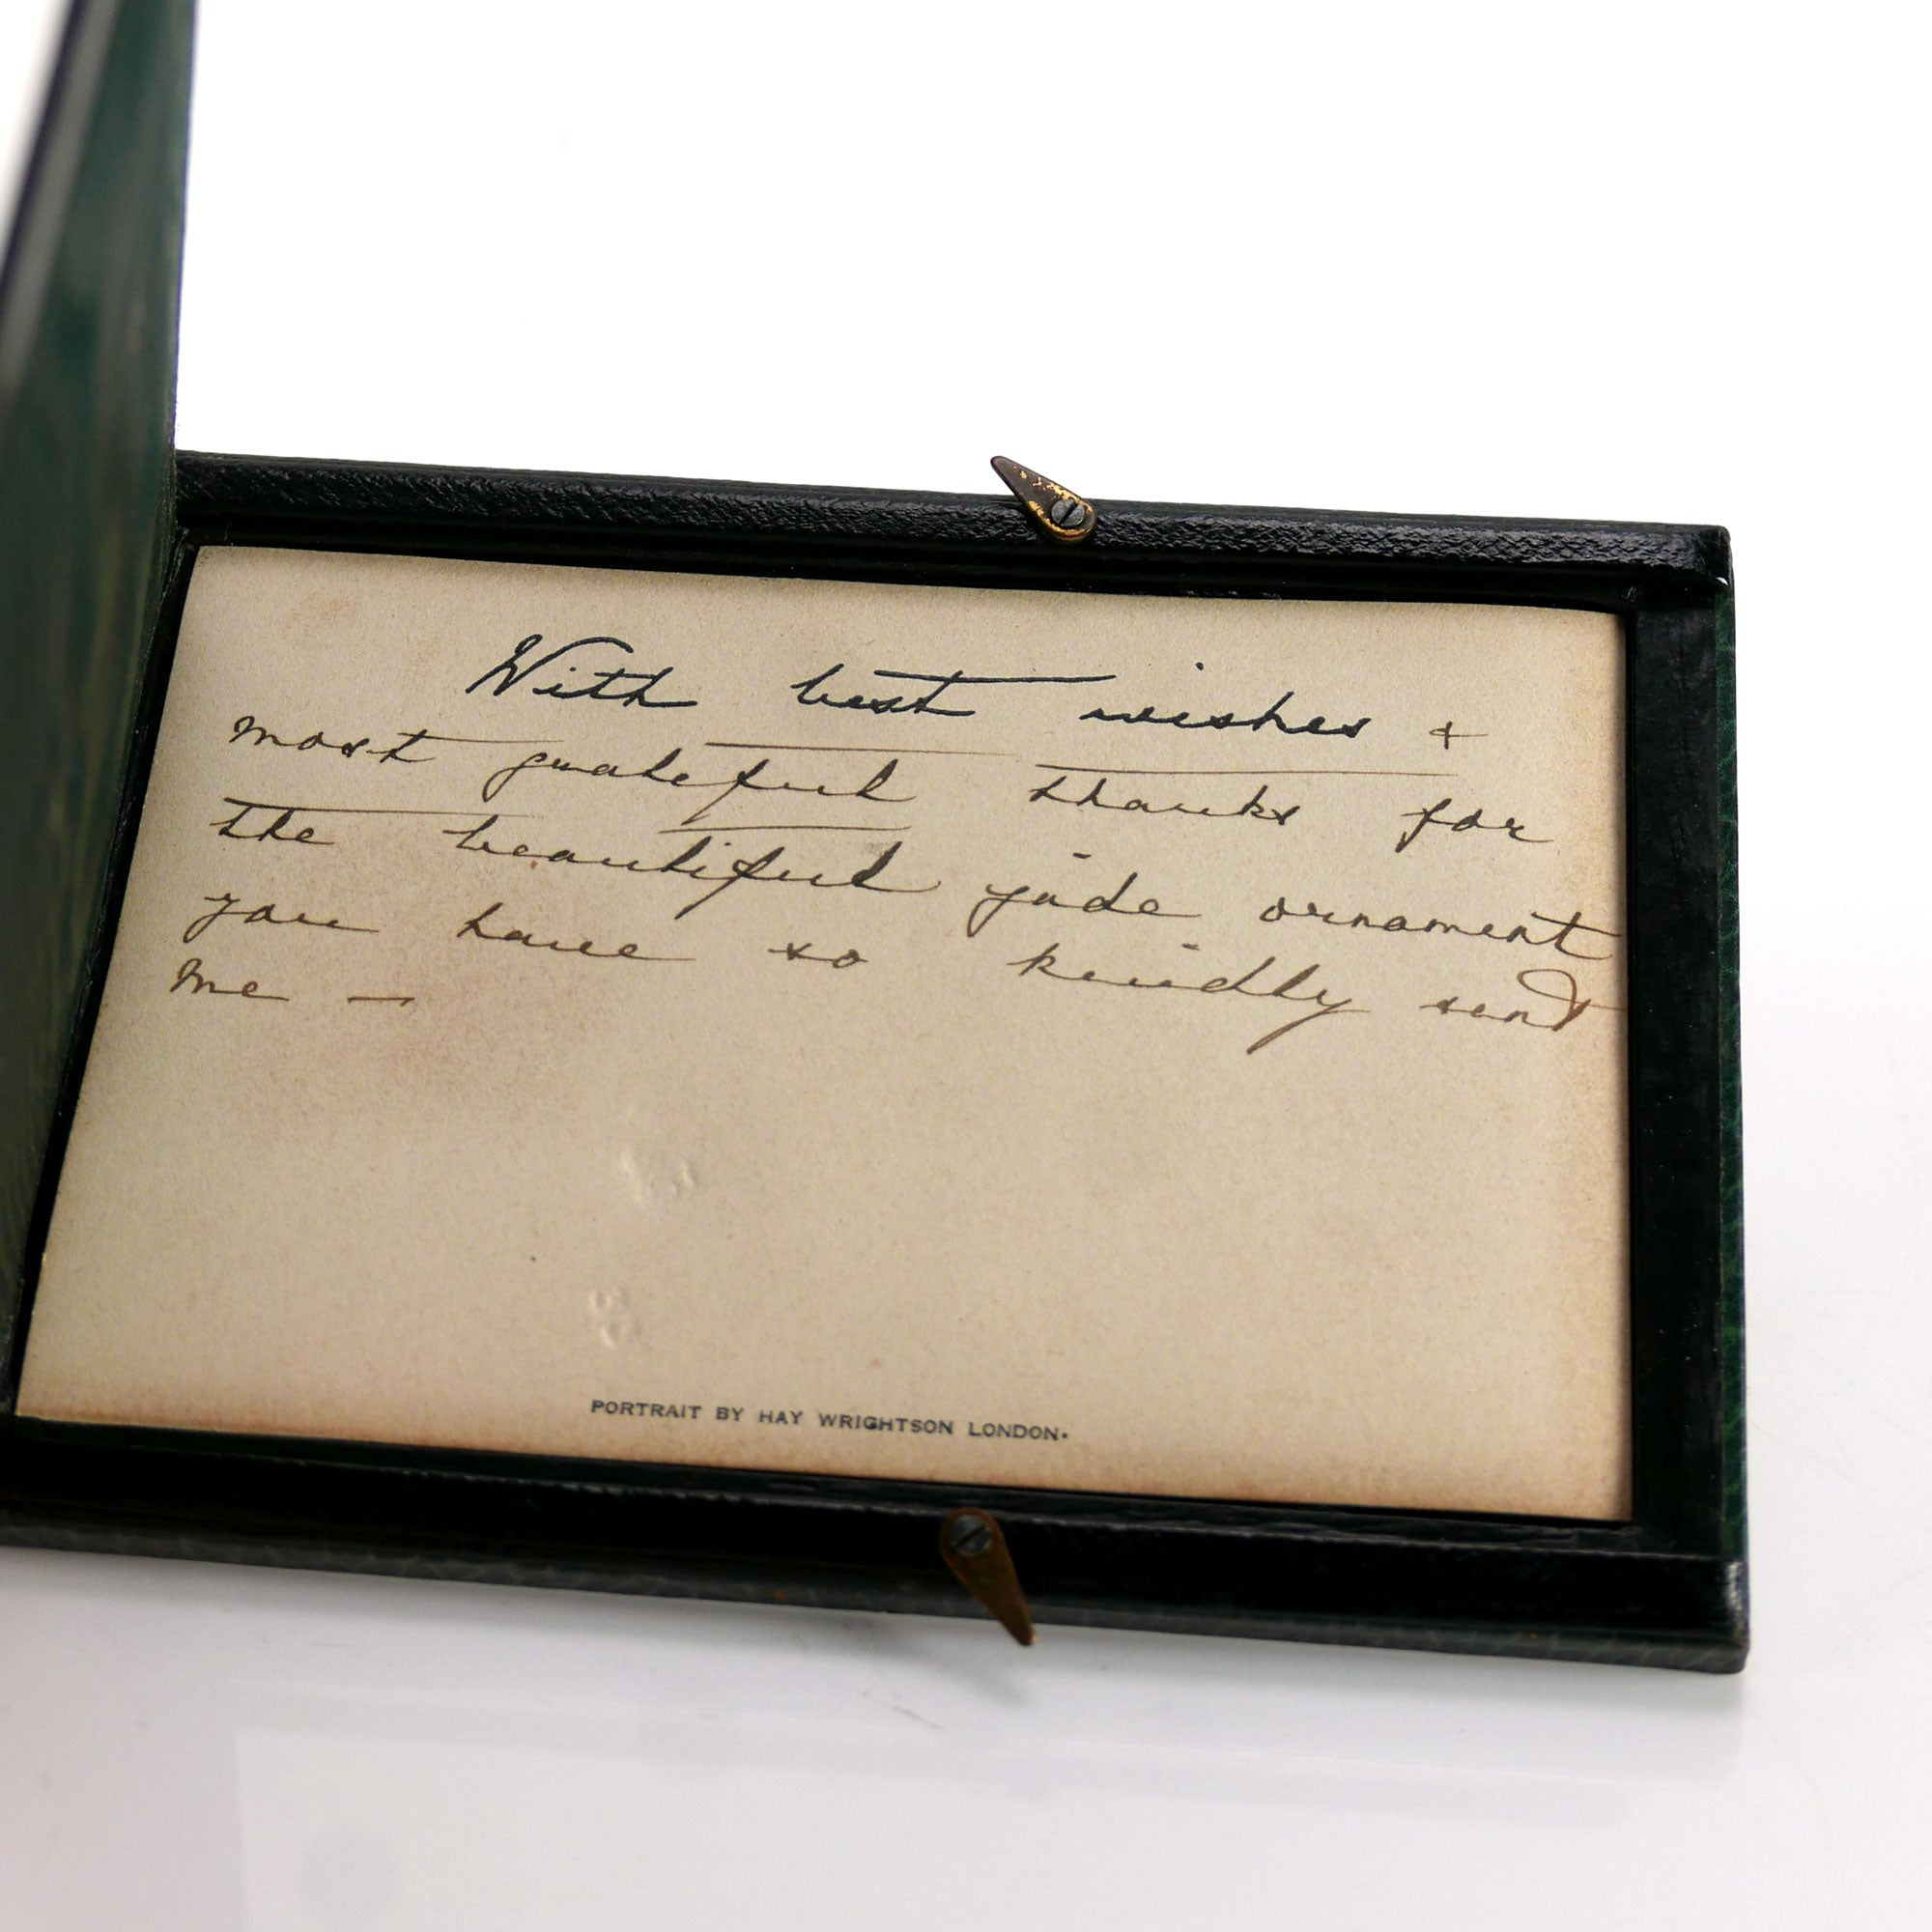 With best wishes +
most grateful thanks for
the beautiful jade ornament
you have so kindly sent
me —
PORTRAIT BY HAY WRIGHTSON LONDON.